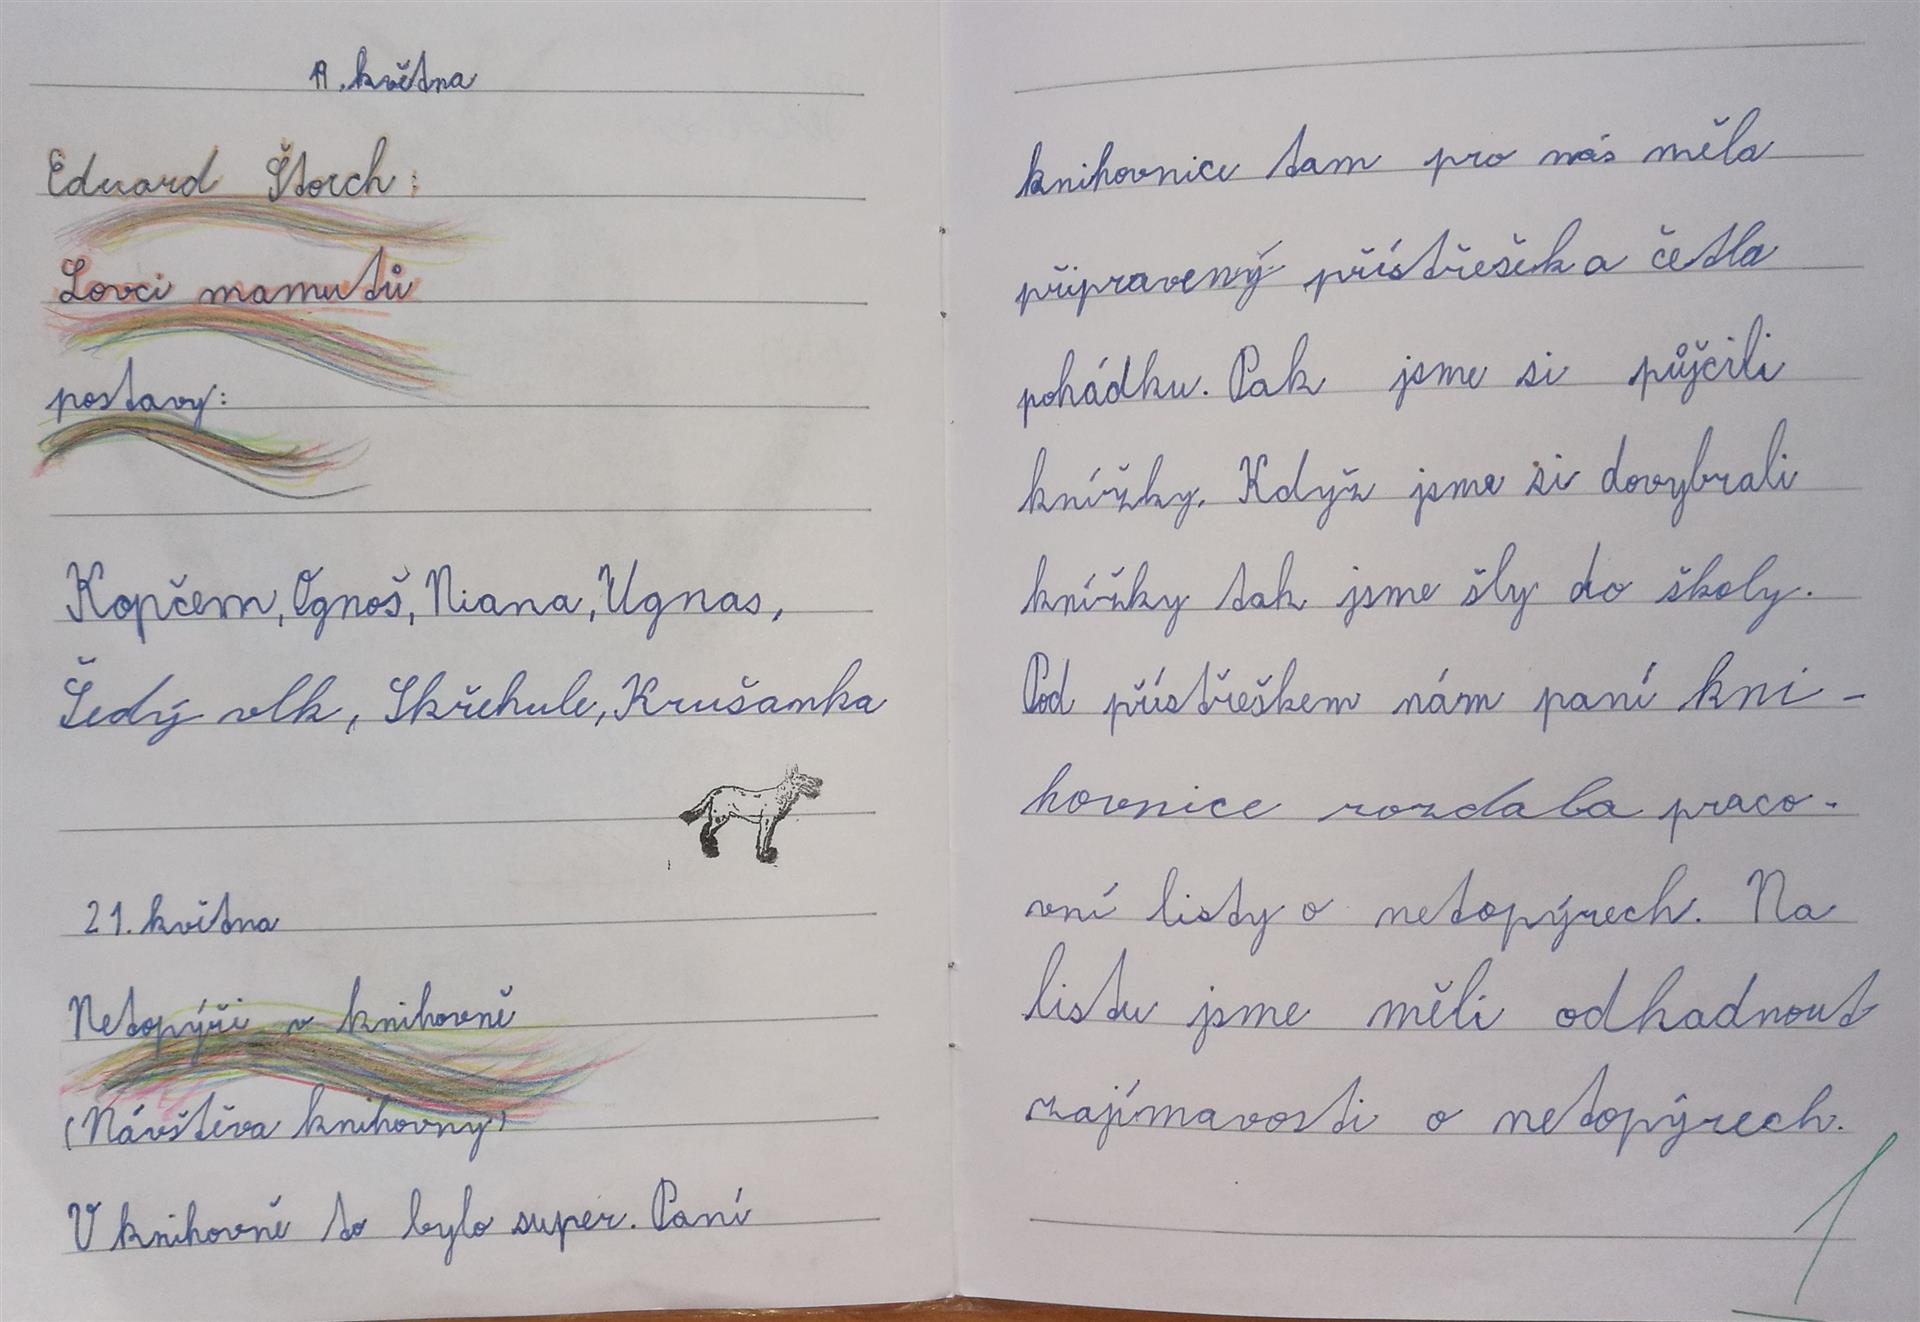 . května
Eduard Štorch:
Lovci mamutů
postavy:
Kopčem, Ognoš, Niana, Ugnas,
Šedý vlk, Skřehule, Krušanka
21. května
Netopýři v knihovně
(Návštěva knihovny)
V knihovně to bylo super. Paní
knihovnice tam pro nás měla
připravený přístřešek a četla
pohádku. Pak jsme si půjčili
knížky. Když jsme si dovybrali
knížky tak jsme šly do školy.
Pod přístřeškem nám paní kni-
hovnice rozdala praco-
vní listy o netopýrech. Na
listu jsme měli odhadnout
zajímavosti o netopýrech.
1